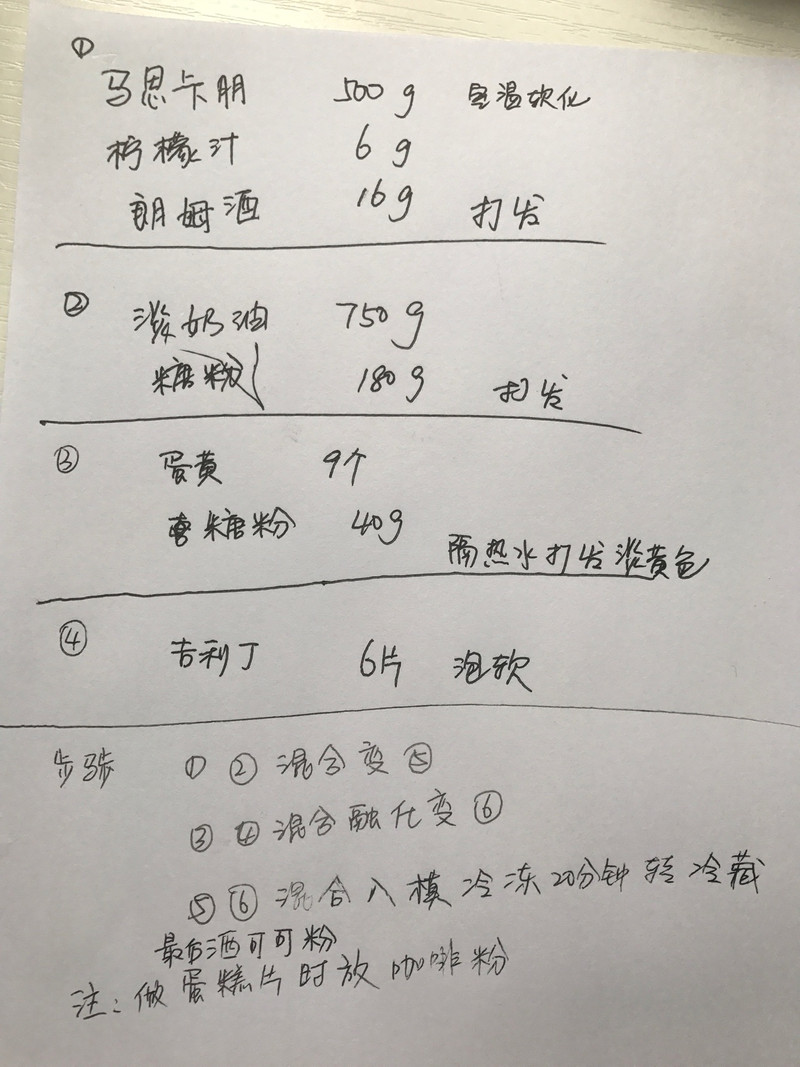 ①
马思卡朋 500g 室温软化
柠檬汁 6g
朗姆酒 16g 打发
② 淡奶油 750g
糖粉 180g 打发
③ 蛋黄 9个
糖粉 40g
隔热水打发淡黄色
④ 吉利丁 6片 泡软
步骤 ① ② 混合变⑤
③ ④ 混合融化变⑥
⑤ ⑥ 混合入模冷冻20分钟转冷藏
最后洒可可粉
注:做蛋糕片时放咖啡粉